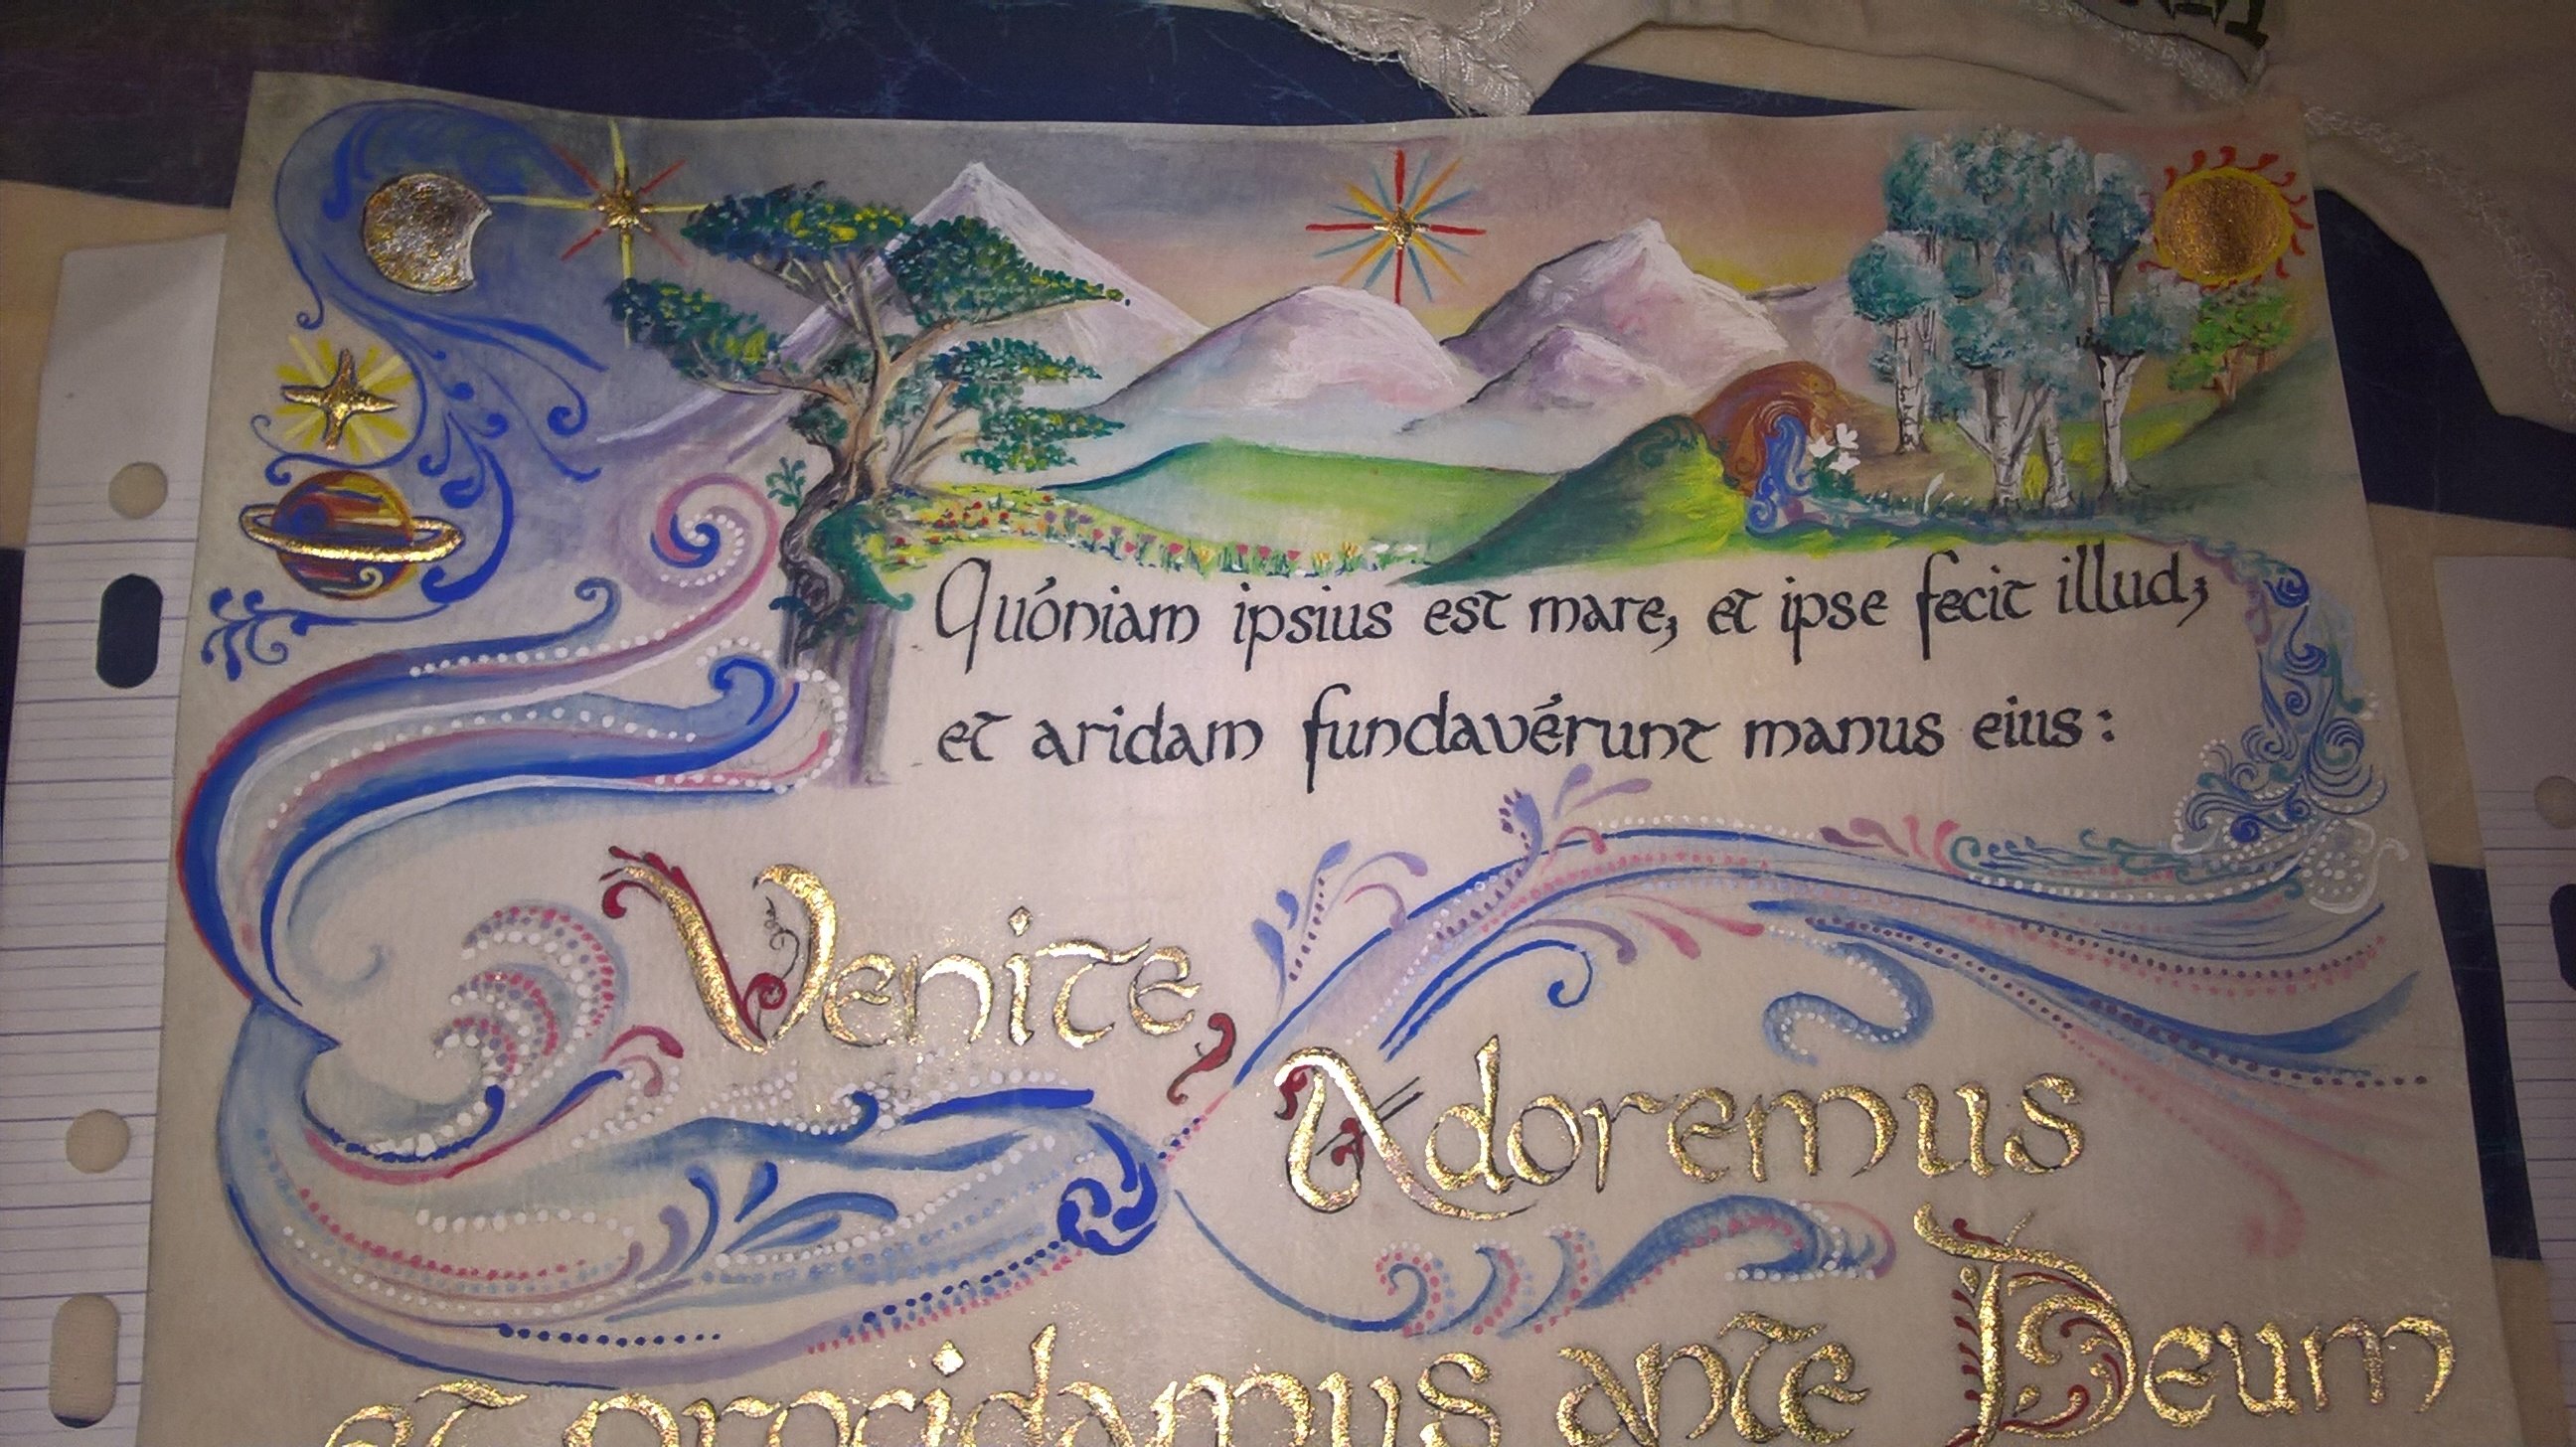 Quóniam ipsius est mare, et ipse fecit illud;
et aridam fundavérunt manus eius:
Venite,
Adoremus
et procidamus ante Deum